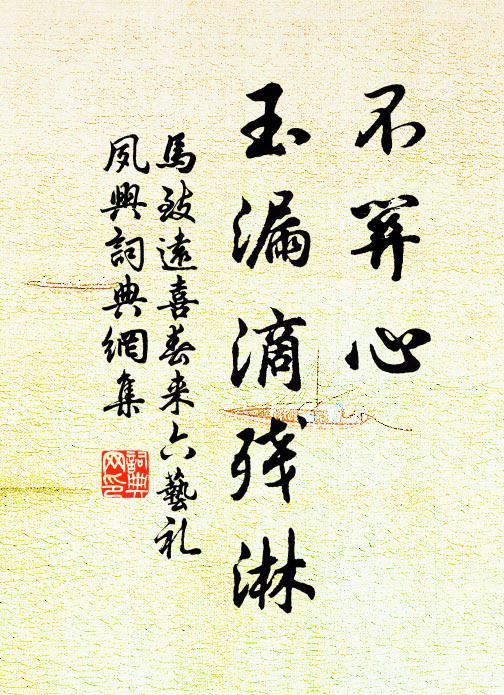 不關心
玉漏滴残淋
馬致遠喜春来六藝礼
夙興詞典網集
詞典网印